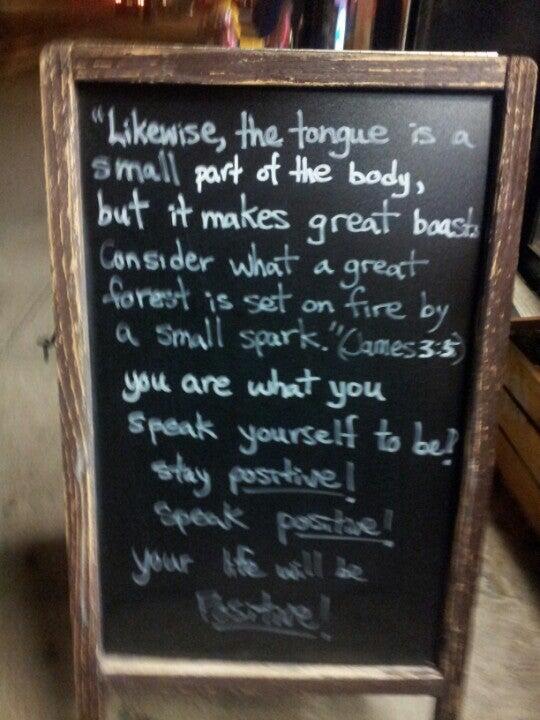 "Likewise, the tongue is a
small part of the body,
but it makes great boasts.
Consider what a great
forest is set on fire by
a small spark."(James 3:5)
you are what you
speak yourself to be!
stay positive!
speak positive!
your life will be
Positive!